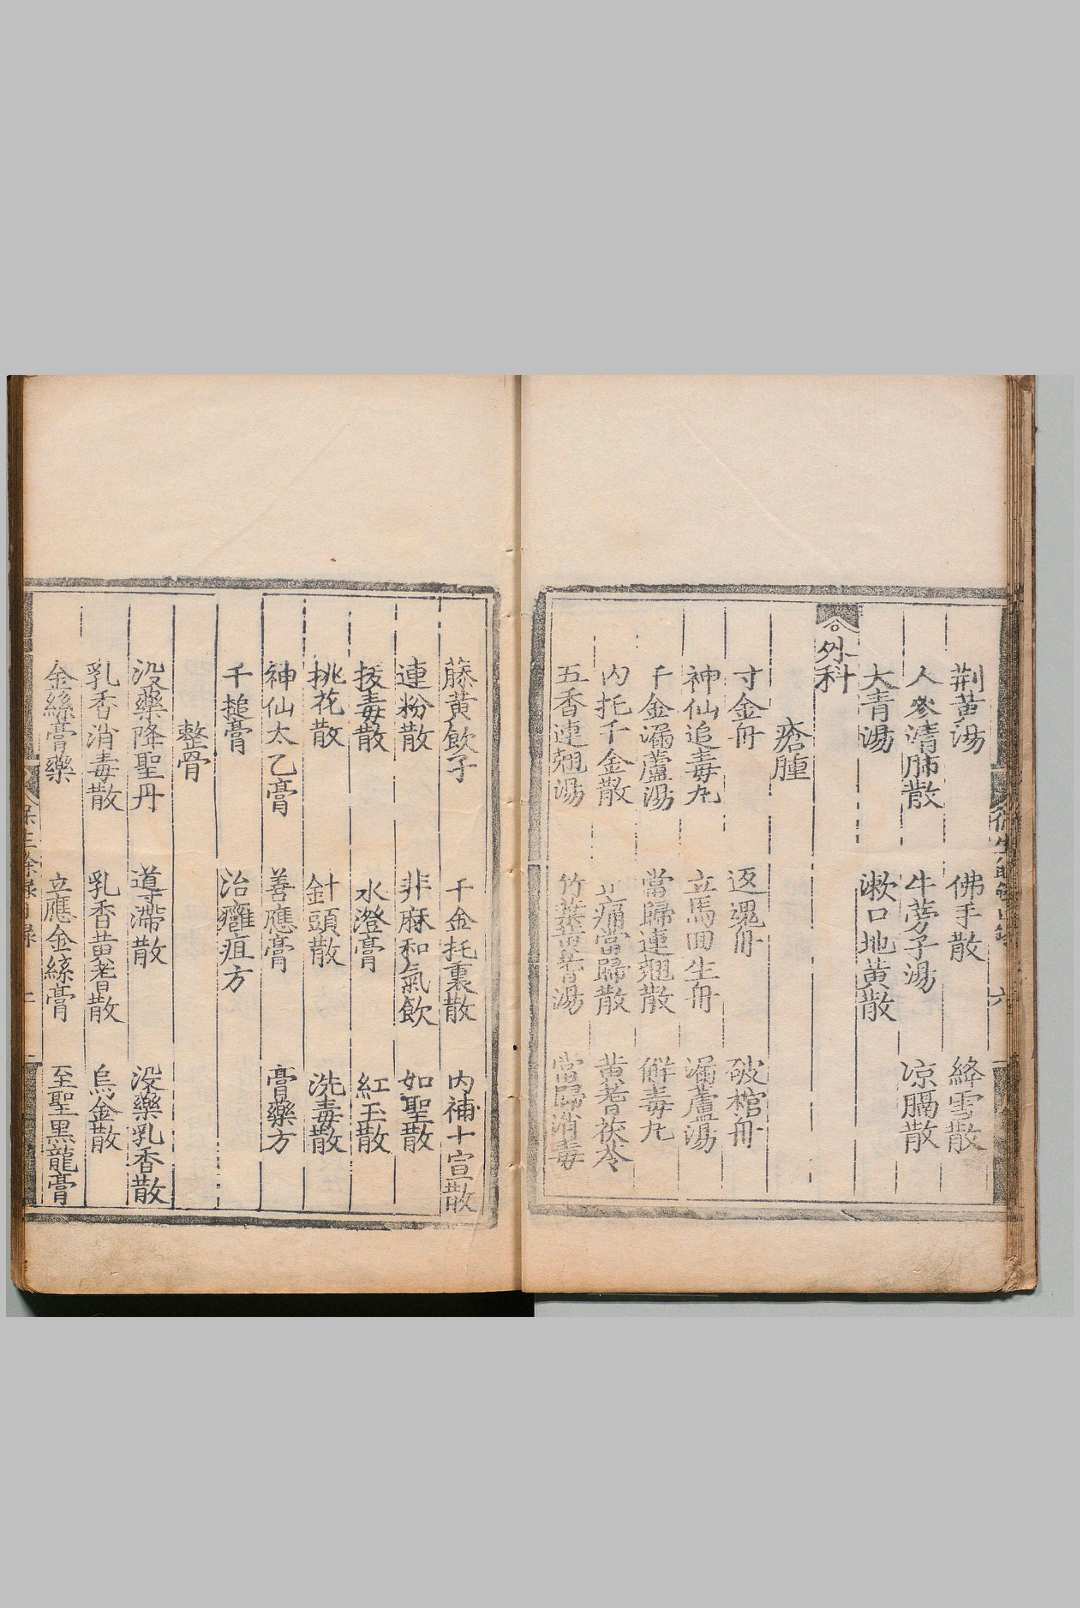 荆黄湯　佛手散　絳雪散
人參清肺散　牛蒡子湯　凉膈散
大青湯　漱口地黄散
外科
瘡腫
寸金丹　返魂丹　破棺丹
神仙追毒丸　立馬回生丹　漏蘆湯
千金漏蘆湯　當歸連翹散　解毒丸
内托千金散　止痛當歸散　黄耆茯苓
五香連翹湯　竹葉黄耆湯　當歸消毒
藤黄飲子　千金托裏散　内補十宣散
連粉散　非麻和氣飲　如聖散
拔毒散　水澄膏　紅玉散
挑花散　針頭散　洗毒散
神仙太乙膏　善應膏　膏藥方
千搥膏　治癰疽方
整骨
没藥降聖丹　導滯散　没藥乳香散
乳香消毒散　乳香黄耆散　烏金散
金絲膏藥　立應金絲膏　至聖黑龍膏